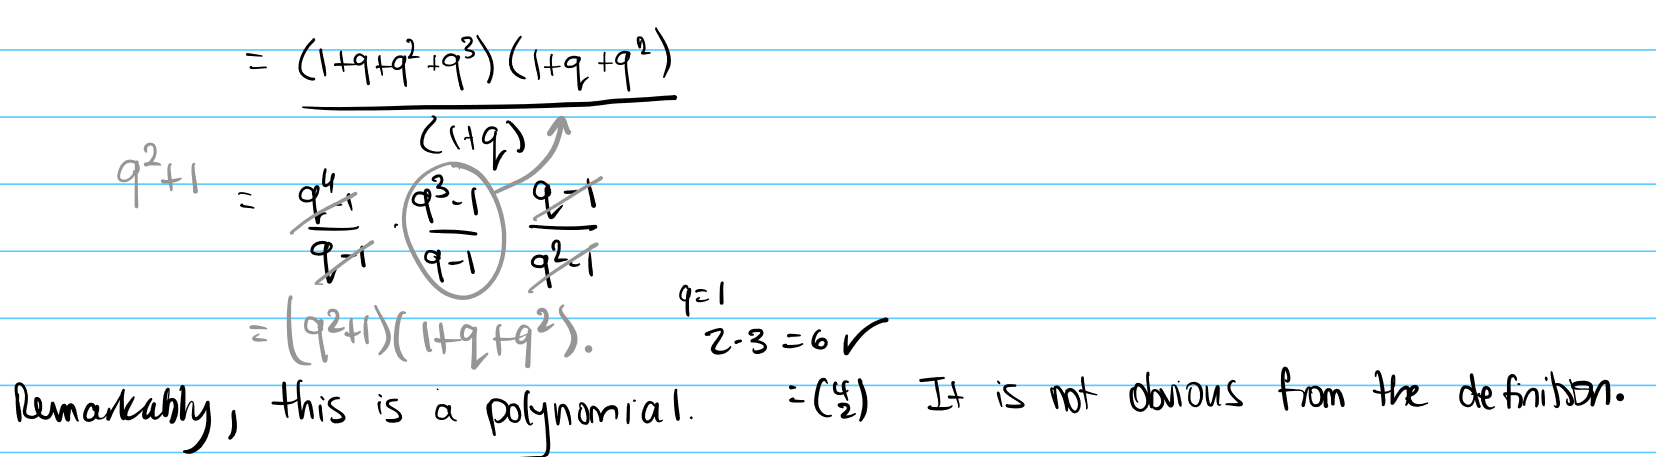 = (1+q+q²+q³)(1+q+q²)
(1+q)
q²+1 = q⁴-1 / q-1 · q³-1 / q-1 q-1 / q²-1
= (q²+1)(1+q+q²).
q=1
2·3=6 ✓
Remarkably, this is a polynomial. = (4 2) It is not obvious from the definition.